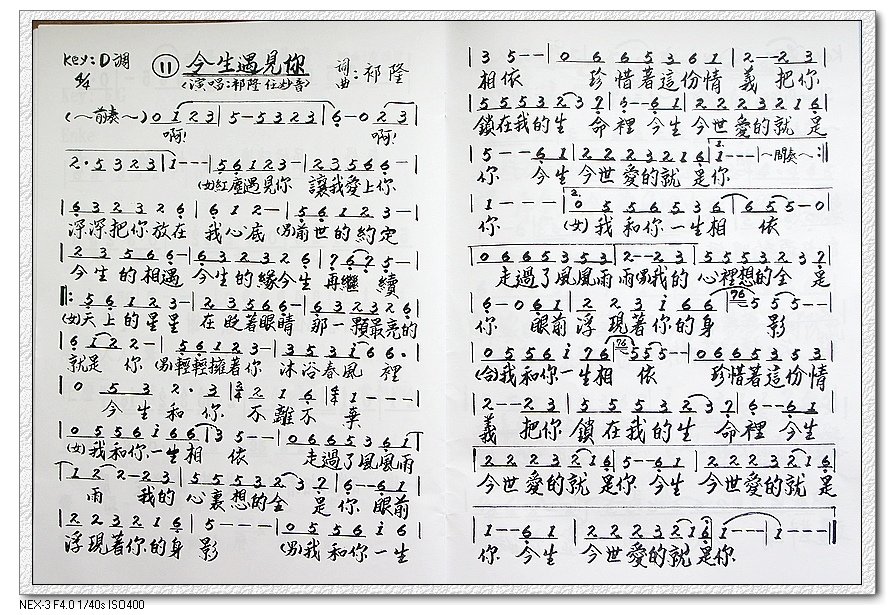 Key:D調 ⑪ 今生遇見你 詞曲:祁隆
4/4 (演唱:祁隆 任妙音)
(~前奏~) 0 1 2 3 | 5 - 5 3 2 3 | 6 - 0 2 3 |
啊! 啊!
2 · 5 3 2 3 | 1 - - - | 5 6 1 2 3 - | 2 3 5 6 6 - |
(女)紅塵遇見你 讓我愛上你
| 6 3 2 3 2 6 | 6 1 2 - | 5 6 1 2 3 - |
深深把你放在 我心底 (男)前世的約定
| 2 3 5 6 6 | 6 3 2 3 2 6 | 7 6 7 5 - |
今生的相遇 今生的緣今生 再繼續
‖: 5 6 1 2 3 - | 2 3 5 6 6 - | 6 3 2 3 2 6 |
(女)天上的星星 在眨着眼睛 那一顆最亮的
| 6 1 2 2 - | 5 6 1 2 3 - | 3 5 3 1 6 6 · |
就是你 (男)輕輕擁著你 沐浴春風裡
0 5 3 2 · 3 | 2 1 6 | 1 - - - |
今生和你 不離不棄
| 0 5 5 6 1 6 6 | 3 5 - - | 0 6 6 5 3 6 1 |
(女)我和你一生相 依 走過了風風雨
| 1 2 2 - 2 3 | 5 5 5 3 2 3 7 | 6 - - 6 1 |
雨 我的 心裏想的全 是你 眼前
| 2 2 3 2 1 6 | 5 - - - | 0 5 5 6 1 6 |
浮現著你的身 影 (男)我和你一生
| 3 5 - - | 0 6 6 5 3 6 1 | 2 - - 2 3 |
相依 珍惜著這份情 義 把你
| 5 5 5 3 2 3 7 | 6 - - 6 1 | 2 2 2 3 2 1 6 |
鎖在我的生 命裡 今生 今世愛的就 是
| 5 - - 6 1 | 2 2 2 3 2 1 6 | 1. 1 - - - | ~間奏~ :‖
你 今生 今世愛的就 是你
| 1 - - - | 2. 0 5 5 6 5 3 6 | 6 5 5 - 0 |
你 (女)我和你一生相 依
| 0 6 6 5 3 5 3 | 2 - - 2 3 | 5 5 5 3 2 3 7 |
走過了風風雨 雨(男)我的 心裡想的全 是
| 6 - 0 6 1 | 2 2 3 1 6 6 | 76 5 5 5 - - |
你 眼前 浮現著你的身 影
| 0 5 5 6 1 7 6 | 76 5 5 5 - - | 0 6 6 5 3 5 3 |
(合)我和你一生相 依 珍惜著這份情
| 2 - - 2 3 | 5 5 5 3 2 3 7 | 6 - - 6 1 |
義 把你 鎖在我的生 命裡 今生
| 2 2 2 3 2 1 6 | 5 - - 6 1 | 2 2 2 3 2 1 6 |
今世愛的就 是你 今生 今世愛的就 是
| 1 - - 6 1 | 2 2 2 3 2 1 6 | 1 - - - | 1 - - - ‖
你 今生 今世愛的就是你
NEX-3 F4.0 1/40s ISO400